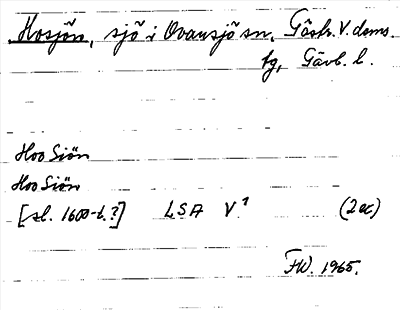 Hosjön, sjö i Ovansjö sn, Gästr. V. doms.
fg, Gävb. l.
Hoo Siön
Hoo Siön
[sl. 1600-t.?] LSA V.1 (2 ex)
FW. 1965.